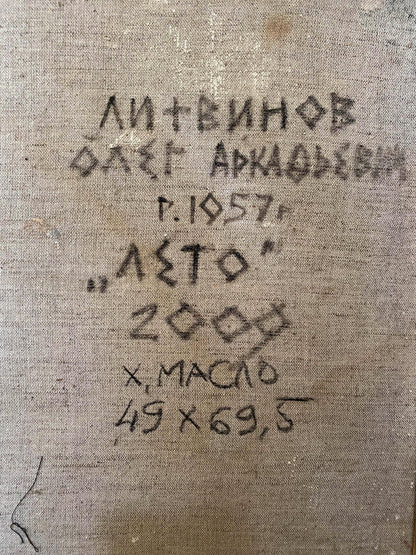 ЛИТВИНОВ
ОЛЕГ АРКАДЬЕВИЧ
г. 1957г
„ЛЕТО"
2009
х, МАСЛО
49 х 69,5